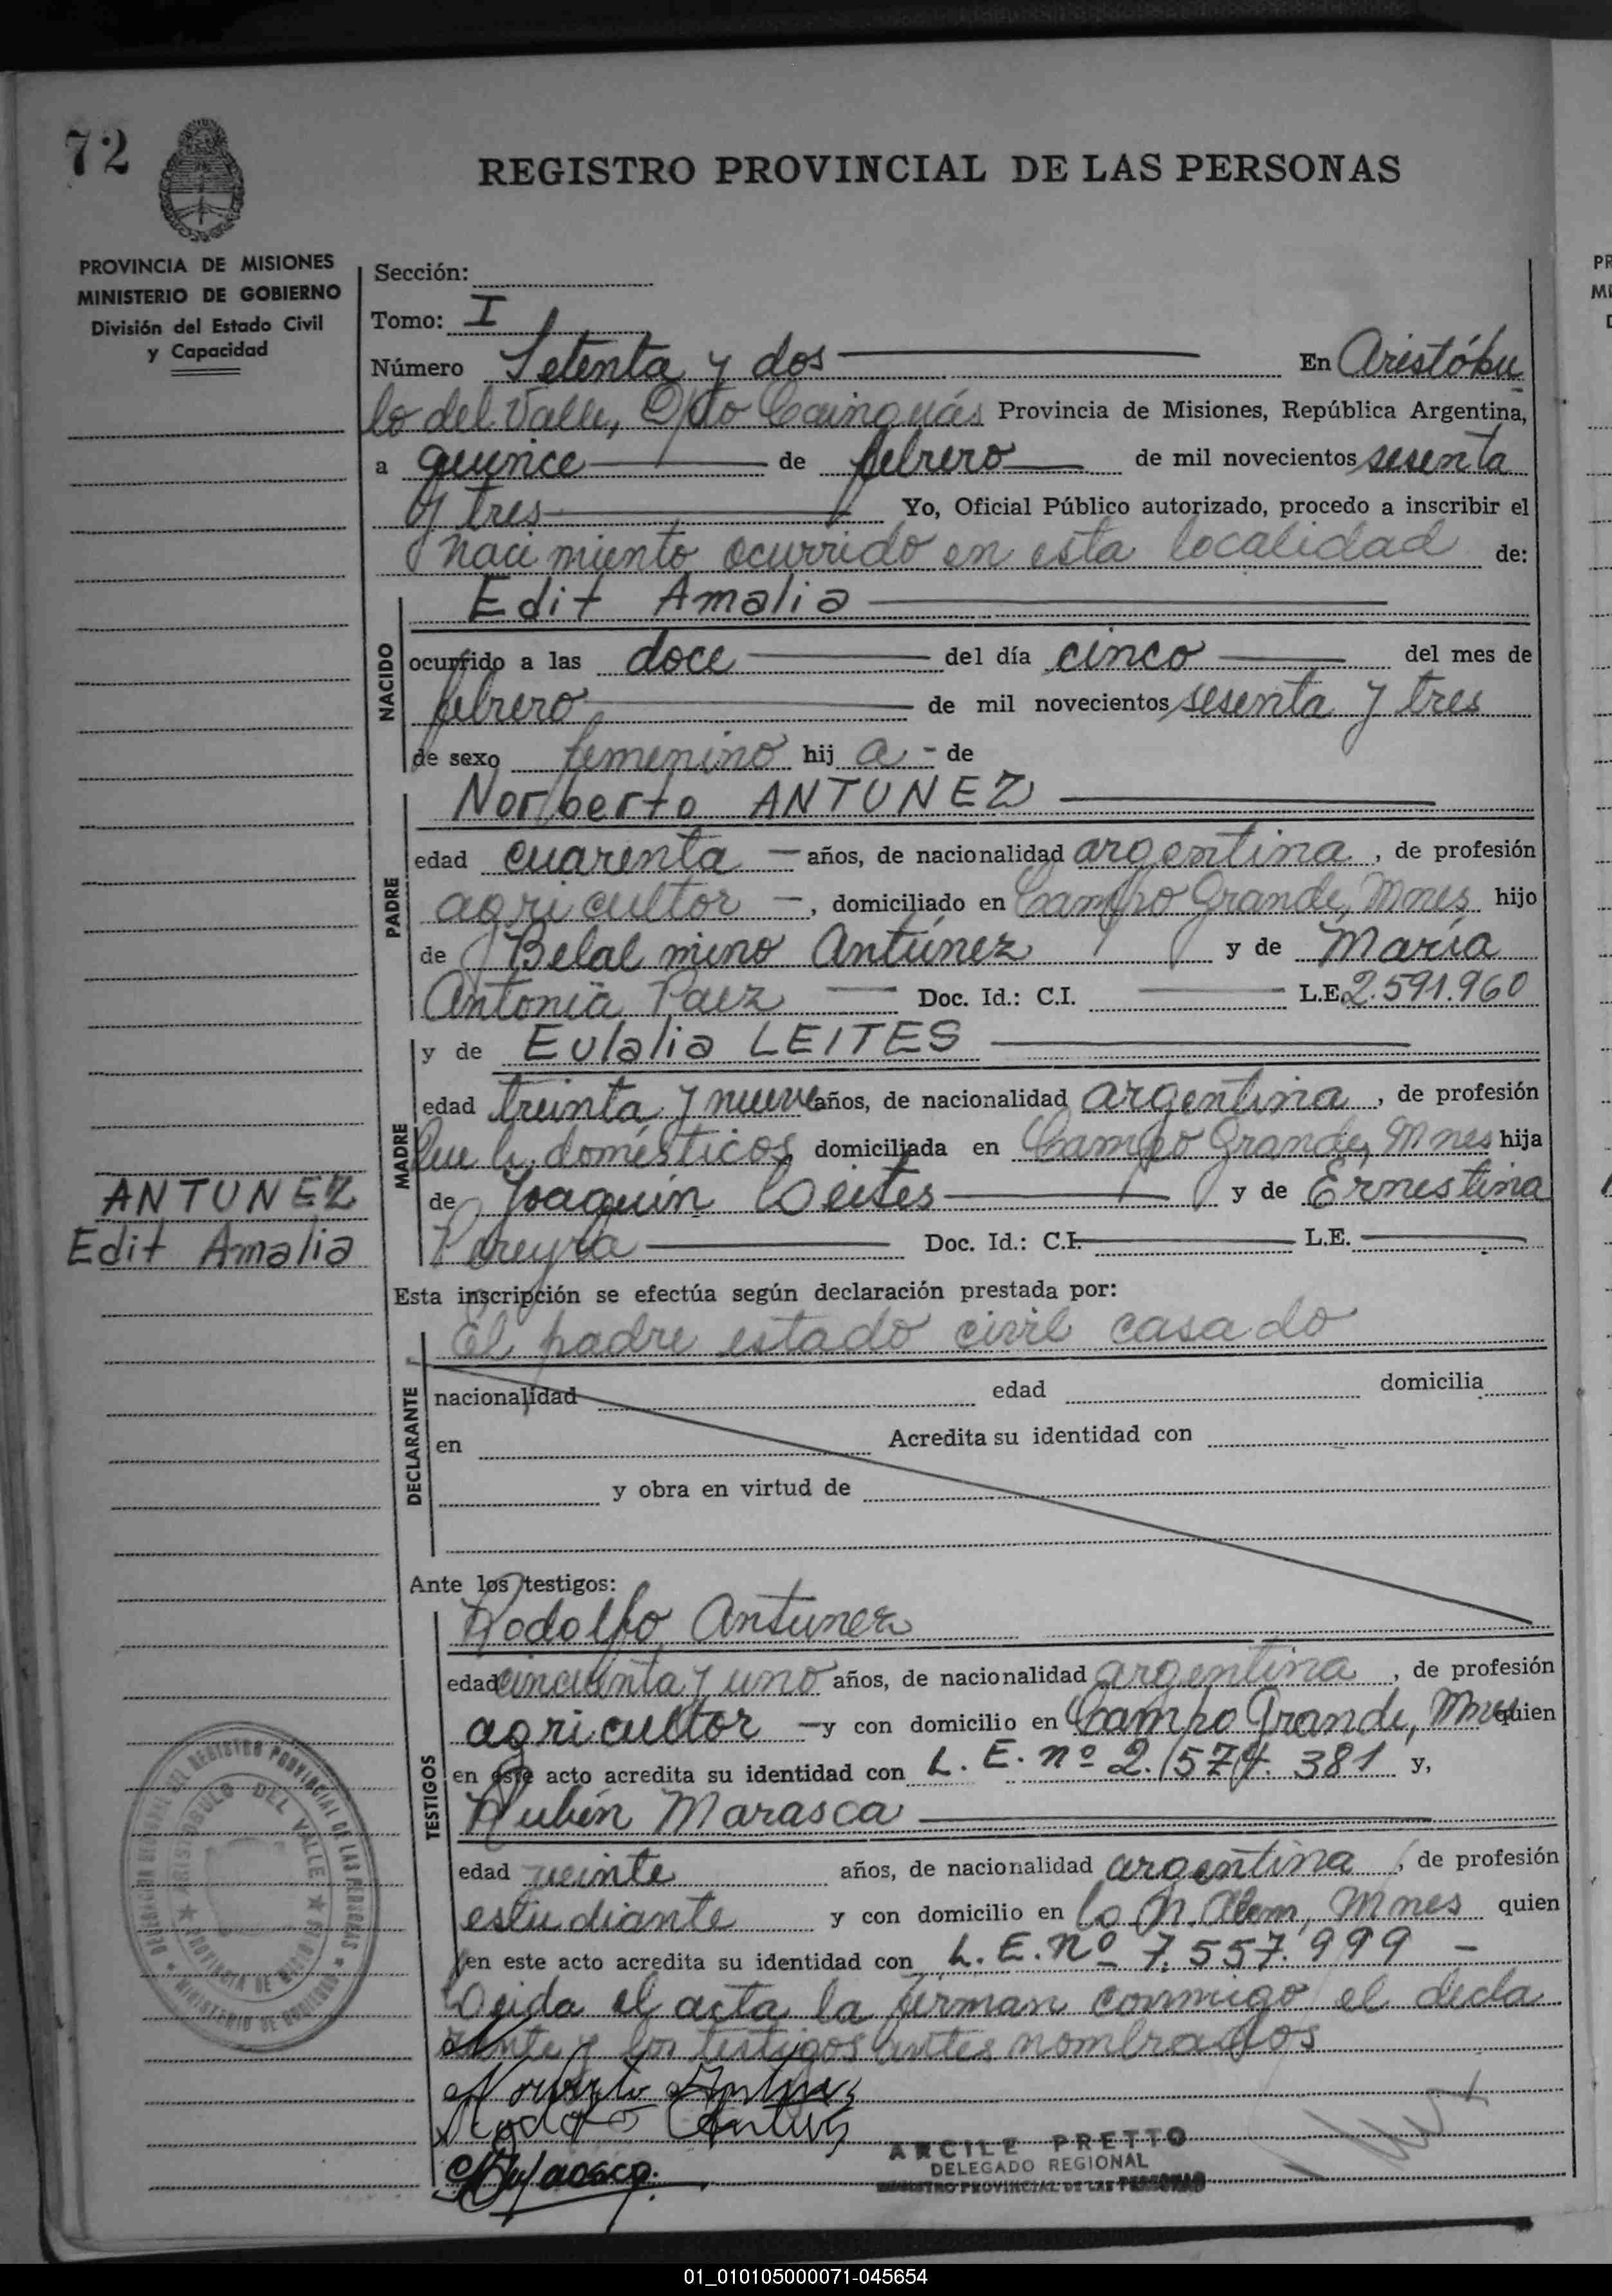 72
REGISTRO PROVINCIAL DE LAS PERSONAS
PROVINCIA DE MISIONES
MINISTERIO DE GOBIERNO
División del Estado Civil
y Capacidad
Sección:
Tomo: I
Número Setenta y dos En Aristóbu
lo del Valle, Dpto Cainguás Provincia de Misiones, República Argentina,
a quince de febrero de mil novecientos sesenta
y tres Yo, Oficial Público autorizado, procedo a inscribir el
nacimiento ocurrido en esta localidad de:
NACIDO
Edit Amalia
ocurrido a las doce del día cinco del mes de
febrero de mil novecientos sesenta y tres
de sexo femenino hij a - de
PADRE
Norberto ANTUNEZ
edad cuarenta - años, de nacionalidad argentina, de profesión
agricultor -, domiciliado en Campo Grande, Mnes hijo
de Belalmino Antúnez y de María
Antonia Paez Doc. Id.: C.I. L.E. 2.591.960
MADRE
y de Eulalia LEITES
edad treinta y nueve años, de nacionalidad argentina, de profesión
domésticos domiciliada en Campo Grande, Mnes hija
de Joaquin Leites y de Ernestina
Pereyra Doc. Id.: C.I. L.E.
ANTUNEZ
Edit Amalia
Esta inscripción se efectúa según declaración prestada por:
DECLARANTE
El padre estado civil casado
nacionalidad edad domicilia
en Acredita su identidad con
y obra en virtud de
Ante los testigos:
TESTIGOS
Rodolfo Antunez
edad cincuenta y uno años, de nacionalidad argentina, de profesión
agricultor - y con domicilio en Campo Grande, Mnes quien
en este acto acredita su identidad con L. E. nº 2.574.381 y,
Rubén Marasca
edad veinte años, de nacionalidad argentina, de profesión
estudiante y con domicilio en L. N. Alem, Mnes quien
en este acto acredita su identidad con L. E. nº 7.557.999 -
Leida el acta la firman conmigo el decla
rante y los testigos antes nombrados
ARCILE PRETTO
DELEGADO REGIONAL
REGISTRO PROVINCIAL DE LAS PERSONAS
ARISTOBULO DEL VALLE
PROVINCIA DE MISIONES
MINISTERIO DE GOBIERNO
01_010105000071-045654